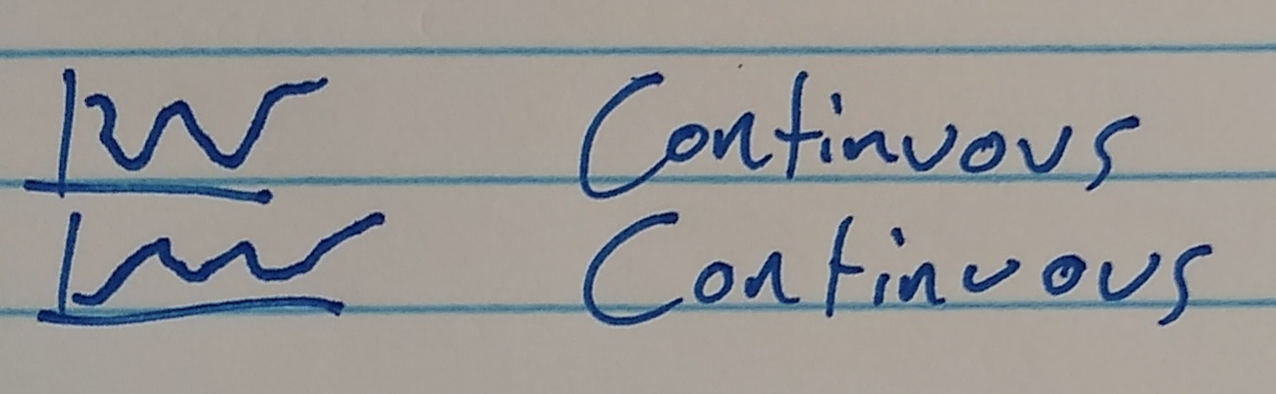 Continuous
Continuous